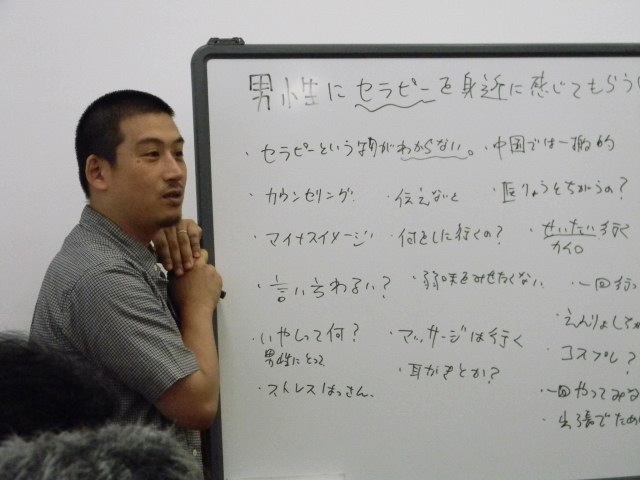 男性にセラピーを身近に感じてもらう
・セラピーという物がわからない。
・中国では一般的
・カウンセリング
・伝えないと
・医りょうとちがうの?
・マイナスイメージ
・何をしに行くの?
・ぜいたい行く
・言いちわるい?
・弱味をみせたくない
・一回行っ
・えんりょして
・いやしって何?
男性にとって
・マッサージは行く
・コスプレ?
・ストレスはっさん。
・耳かきとか?
・一回やってみな
・出張でため